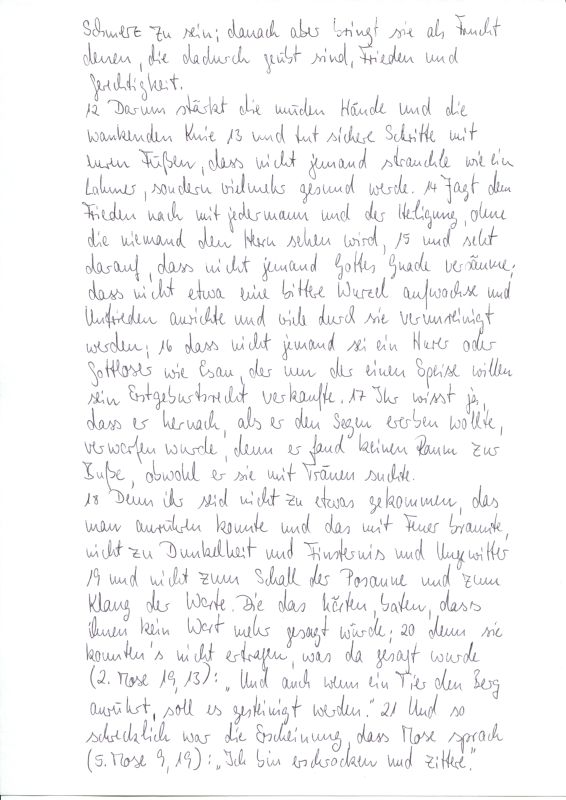 Schmerz zu sein; danach aber bringt sie als Frucht
denen, die dadurch geübt sind, Frieden und
Gerechtigkeit.
12 Darum stärkt die müden Hände und die
wankenden Knie 13 und tut sichere Schritte mit
euren Füßen, dass nicht jemand strauchle wie ein
Lahmer, sondern vielmehr gesund werde. 14 Jagt dem
Frieden nach mit jedermann und der Heiligung, ohne
die niemand den Herrn sehen wird, 15 und seht
darauf, dass nicht jemand Gottes Gnade versäume;
dass nicht etwa eine bittere Wurzel aufwachse und
Unfrieden anrichte und viele durch sie verunreinigt
werden; 16 dass nicht jemand sei ein Hurer oder
Gottloser wie Esau, der um der einen Speise willen
sein Erstgeburtsrecht verkaufte. 17 Ihr wisst ja,
dass er hernach, als er den Segen ererben wollte,
verworfen wurde, denn er fand keinen Raum zur
Buße, obwohl er sie mit Tränen suchte.
18 Denn ihr seid nicht zu etwas gekommen, das
man anrühren konnte und das mit Feuer brannte,
nicht zu Dunkelheit und Finsternis und Ungewitter
19 und nicht zum Schall der Posaune und zum
Klang der Worte. Die das hörten, baten, dass
ihnen kein Wort mehr gesagt würde; 20 denn sie
konnten's nicht ertragen, was da gesagt wurde
(2. Mose 19, 13): „Und auch wenn ein Tier den Berg
anrührt, soll es gesteinigt werden." 21 Und so
schrecklich war die Erscheinung, dass Mose sprach
(5. Mose 9, 19): „Ich bin erschrocken und zittere."